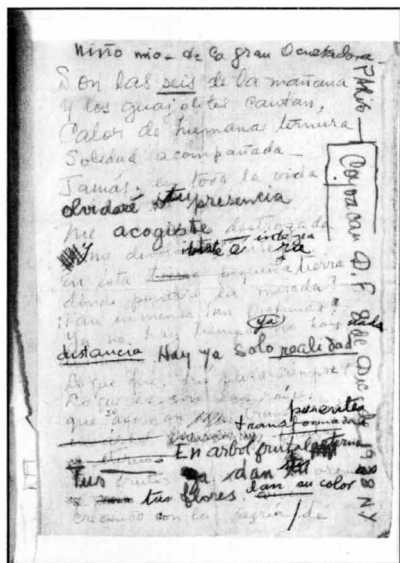 Niño mio - de la gran Ocultadora
Son las seis de la mañana
Y los guajolotes cantan,
Calor de humana ternura
Soledad acompañada -
Jamás, en toda la vida
olvidaré tu presencia
Me acogiste destrozada
y me íntegra
En esta pequeña tierra
dónde pondré la mirada?
Tan inmensa tan profunda!
Ya no hay tiempo, no hay nada
distancia. Hay ya solo realidad
Lo que fué, fué para siempre!
Lo que son las raíces
que se asoman transparentes
transformadas
En arbol frutal eterno
Tus frutas ya dan
tus flores dan su color
creciendo con la alegría de
PARIS - Coyoacan D.F. 8 de Dic. de 1938 NY